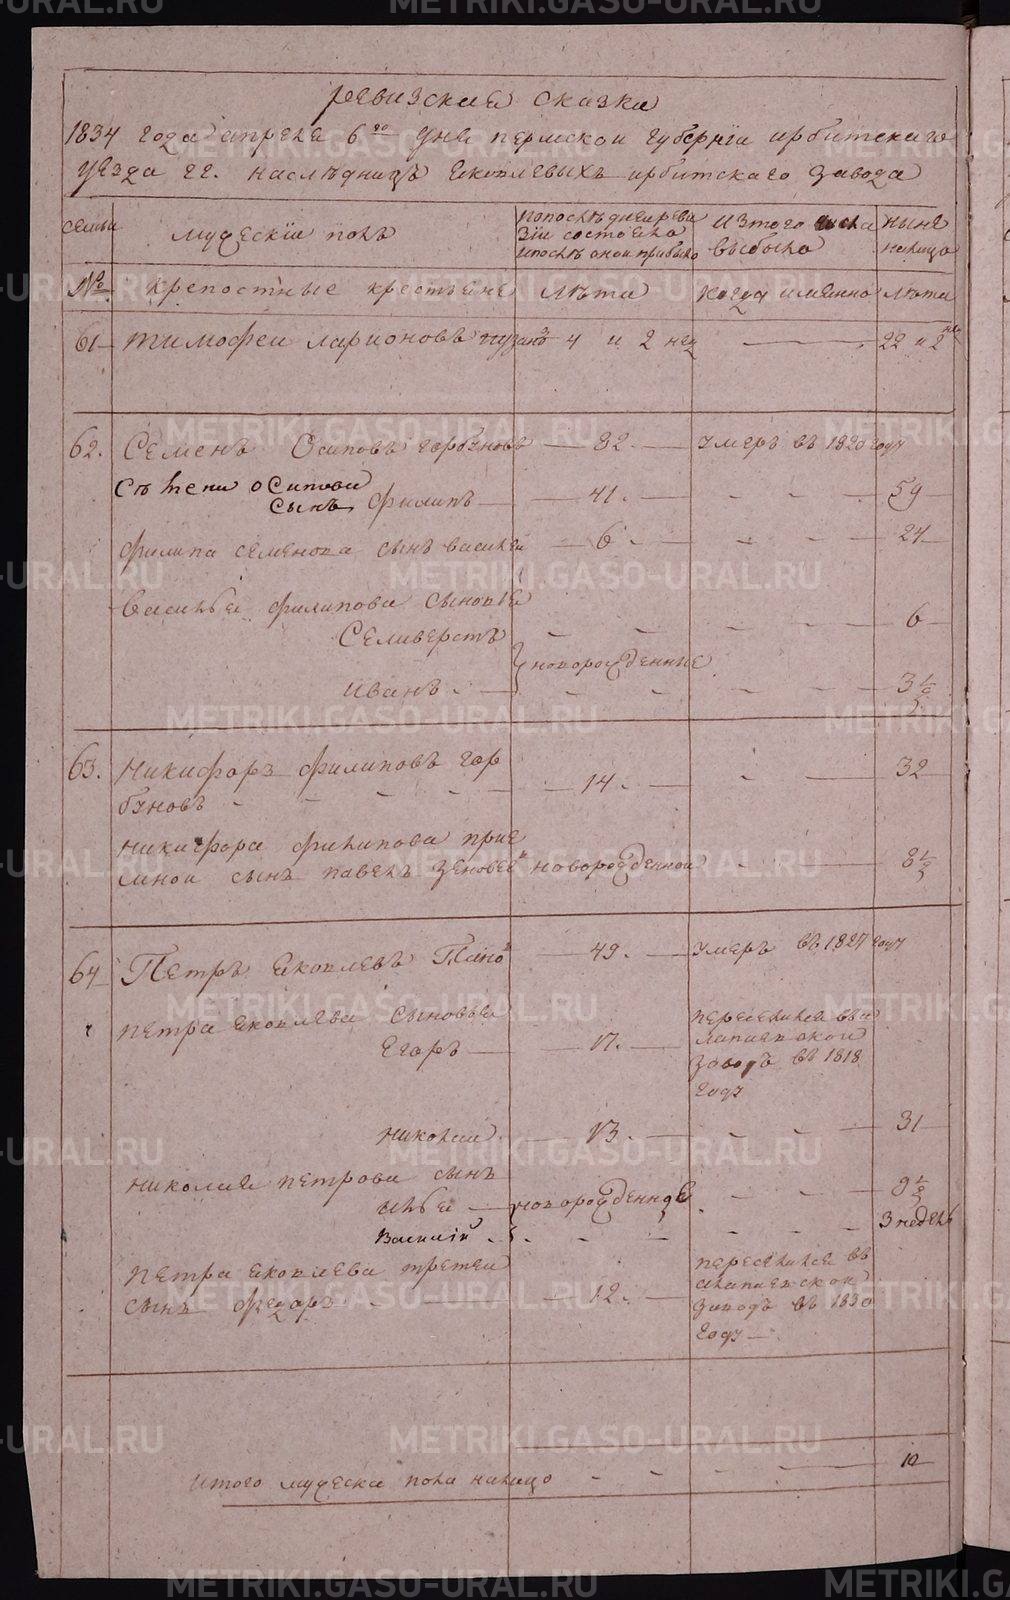 ревизская сказка
1834 года апреля 6го дня пермской губернїи ирбитскаго
уезда гг. наслѣдницъ Яковлевыхъ ирбитскаго завода
семьи
мужескїи полъ
по послѣдней реви
зїи состояло
и послѣ оной прибыло
из того числа
выбыло
ныне
налицо
№ крепостные крестьяне лѣта когда имянно лѣта
61 тимофеи ларионовъ 4 и 2 нед 22 и 2 нед
62. Семенъ Осиповъ горбуновъ 82. умеръ въ 1820 году
осипова
сынъ филипъ 41. 59
филипа семенова сынъ василеи 6 24
Василья филипова сыновья
Селиверстъ 6
новорожденные
иванъ 3 1/2
63. Никифоръ филиповъ гор
буновъ 14. 32
никифора филипова прие
мной сынъ павелъ новорожденной 8 1/2
64 Петръ яковлевъ 49. умеръ въ 1827 году
петра яковлева сыновья
Егоръ 17. переселился въ а
лапаевской
заводъ въ 1818
году
николаи 13. 31
николая петрова сынъ
илья новорожденные 9 1/2
Василій 3 недель
петра яковлева третеи
сынъ федоръ 12. переселился въ
алапаевской
заводъ въ 1830
году
итого мужеска пола налицо 10
METRIKI.GASO-URAL.RU